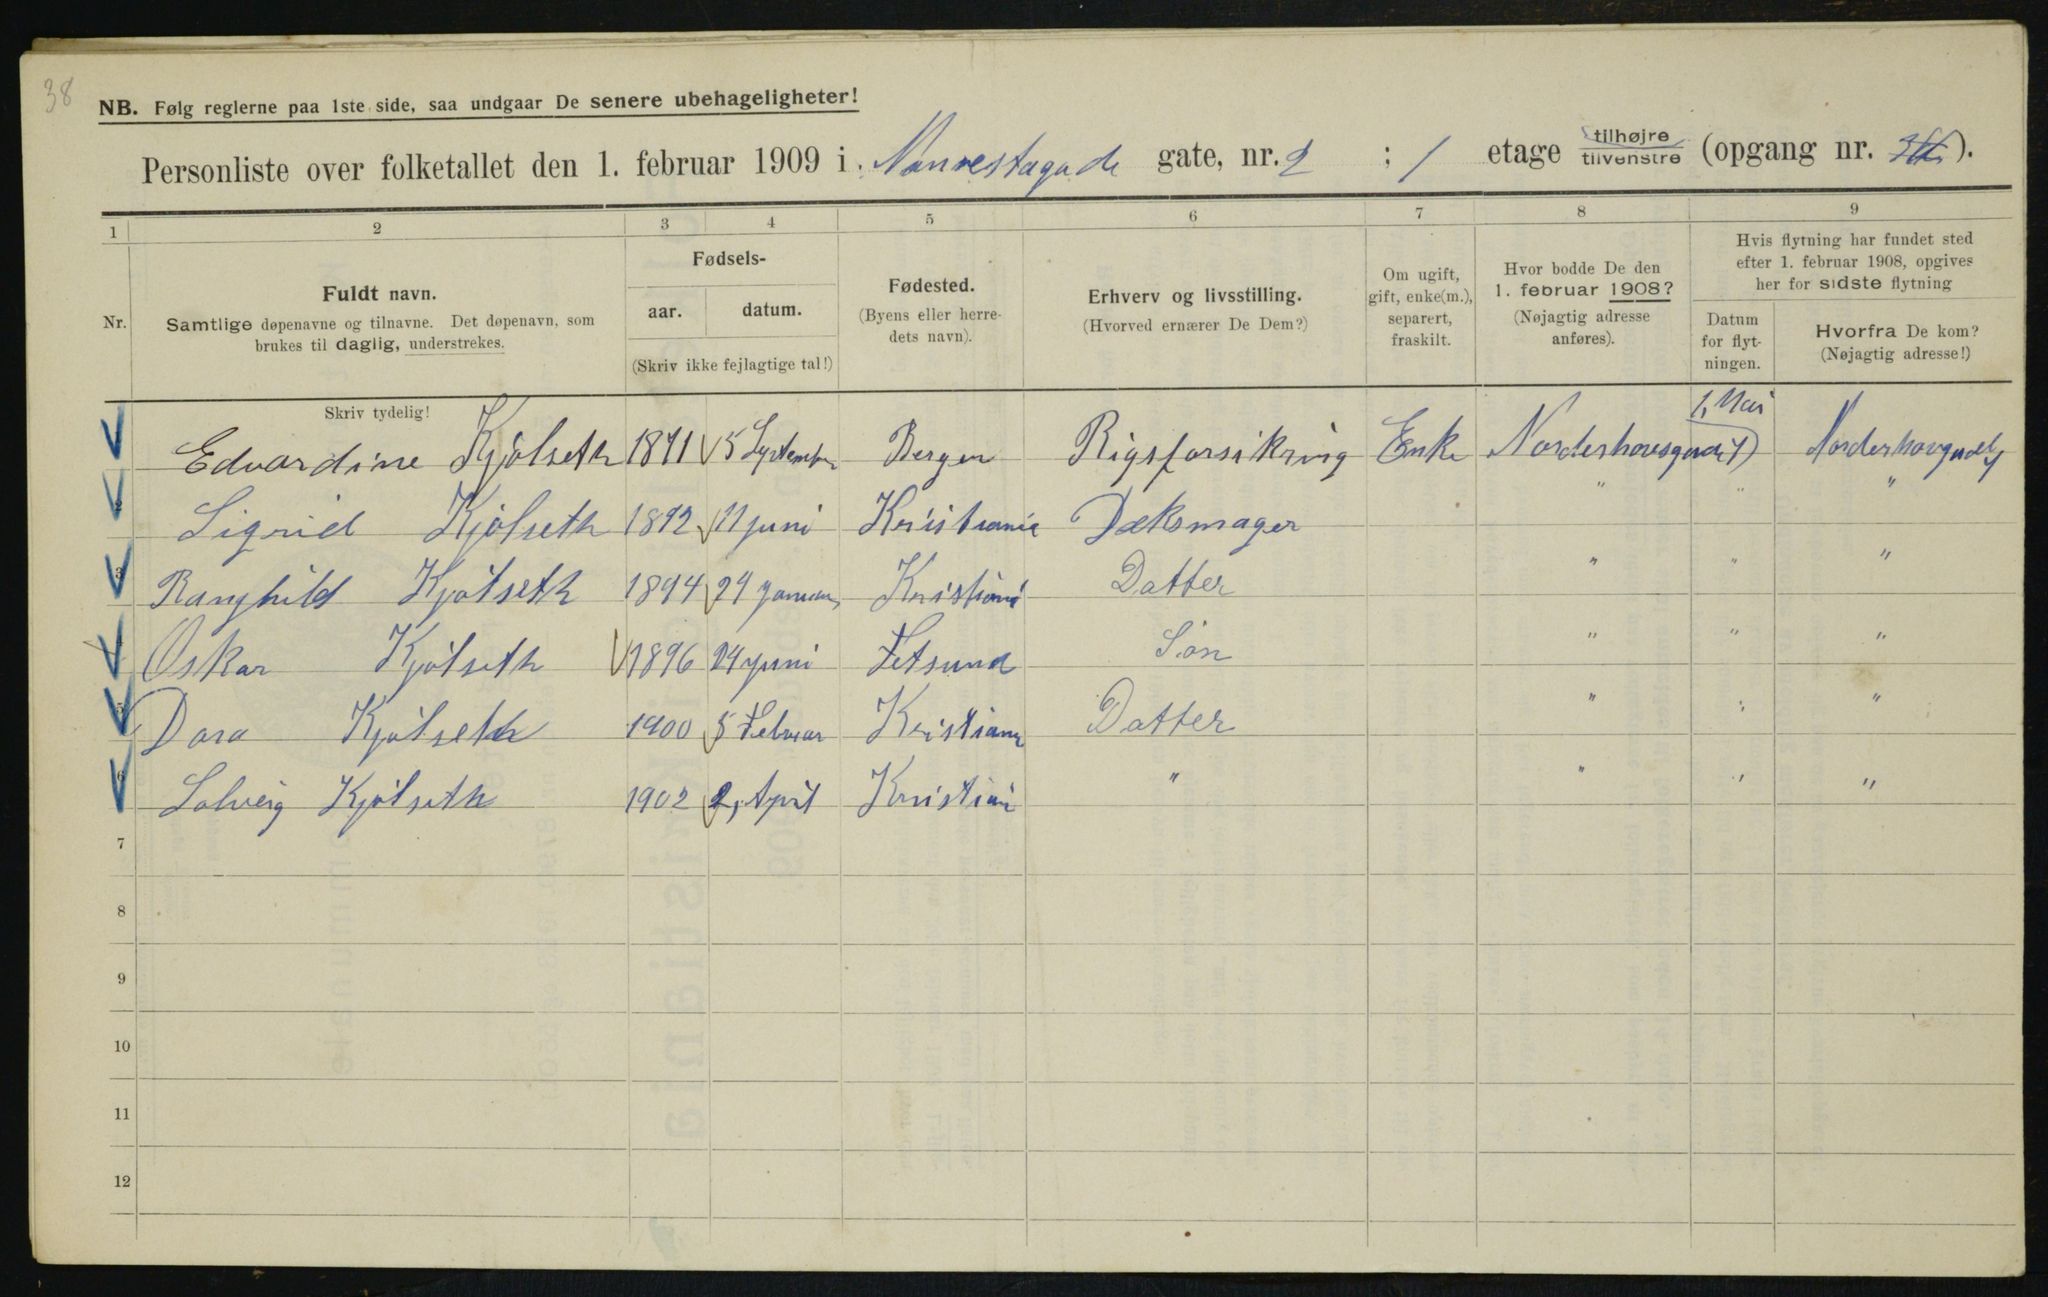 38
NB. Følg reglerne paa 1ste side, saa undgaar De senere ubehageligheter!
Personliste over folketallet den 1. februar 1909 i Nannestagade gate, nr. 2 ; 1 etage tilhøjre tilvenstre (opgang nr. ).
1 2 3 4 5 6 7 8 9
Nr.
Fuldt navn.
Samtlige døpenavne og tilnavne. Det døpenavn, som
brukes til daglig, understrekes.
Fødsels-
aar. datum.
(Skriv ikke fejlagtige tal!)
Fødested.
(Byens eller herre-
dets navn).
Erhverv og livsstilling.
(Hvorved ernærer De Dem?)
Om ugift,
gift, enke(m.),
separert,
fraskilt.
Hvor bodde De den
1. februar 1908?
(Nøjagtig adresse
anføres).
Hvis flytning har fundet sted
efter 1. februar 1908, opgives
her for sidste flytning
Datum
for flyt-
ningen.
Hvorfra De kom?
(Nøjagtig adresse!)
Skriv tydelig!
1, Mai
Edvardine Kjölseth 1871 5 September Bergen Rigsforsikring Enke Norderhovsgad
2 Sigrid Kjölseth 1892 11 juni Kristiania Dæksmager " " "
3 Ranghild Kjölseth 1894 24 Januar Kristiania Datter " " "
4 Oskar Kjölseth 1896 24 juni Fetsund Sön " " "
5 Dora Kjölseth 1900 5 Februar Kristiania Datter " " "
6 Solveig Kjölseth 1902 2, April Kristiani " " " "
7
8
9
10
11
12